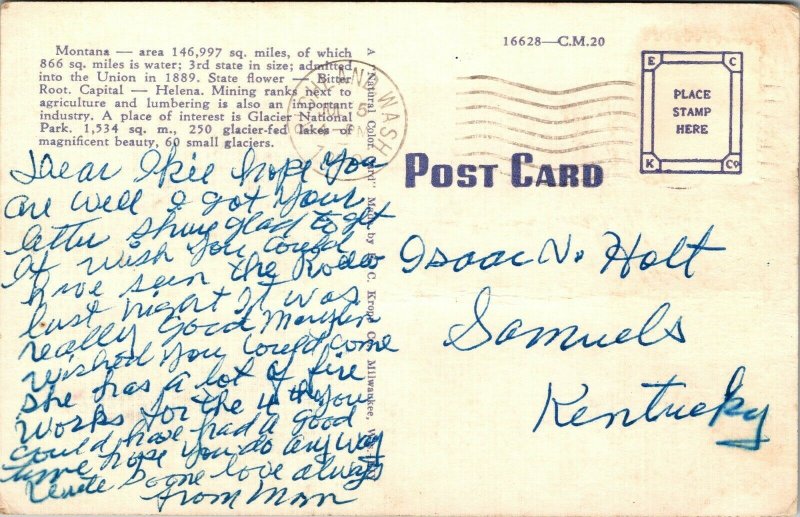 16628—C.M.20
Montana — area 146,997 sq. miles, of which
866 sq. miles is water; 3rd state in size; admitted
into the Union in 1889. State flower — Bitter
Root. Capital — Helena. Mining ranks next to
agriculture and lumbering is also an important
industry. A place of interest is Glacier National
Park. 1,534 sq. m., 250 glacier-fed lakes of
magnificent beauty, 60 small glaciers.
WASH
5
E C
PLACE
STAMP
HERE
K Co
POST CARD
A "Natural Color Card" Made by E. C. Kropp Co., Milwaukee, Wis.
Dear Ikie hope you
are well I got your
letter shure glad to get
it wish you could
have seen the Rodeo
last night It was
really good Marylin
wished you could come
she has a lot of fire
works for the 4 th you
could have had a good
time hope you do anyway
love always
from Mom
Isaac N. Holt
Samuels
Kentucky